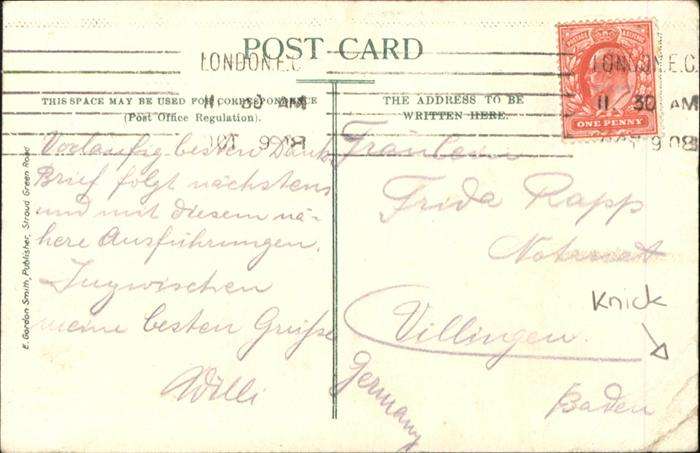 POST CARD
LONDON.E.C.
11 30 AM
OCT 9 08
LONDON.E.C.
11. 30 AM
OCT 9 08
ONE PENNY
THIS SPACE MAY BE USED FOR CORRESPONDENCE
(Post Office Regulation).
THE ADDRESS TO BE
WRITTEN HERE.
E. Gordon Smith, Publisher, Stroud Green Road
Vorläufig besten Dank
Brief folgt nächstens
und mit diesem nä-
here Ausführungen.
Inzwischen
meine besten Grüße
Willi
Fräulein
Frida Rapp
Notariat
Villingen.
Baden
Germany
Knick